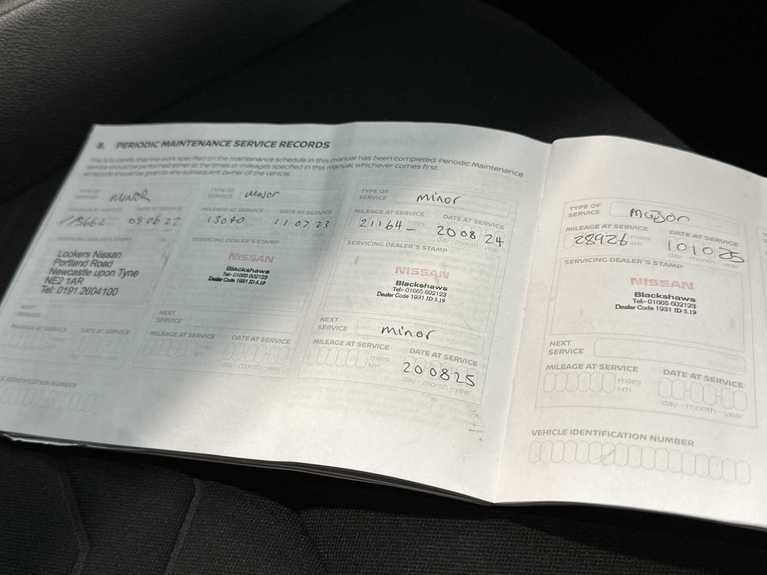 8. PERIODIC MAINTENANCE SERVICE RECORDS
This is to certify that the work specified on the maintenance schedule in this manual has been completed. Periodic Maintenance
Service should be performed either at the times or mileages specified in this manual, whichever comes first.
All records should be given to any subsequent owner of the vehicle.
TYPE OF
SERVICE Minor
MILEAGE AT SERVICE DATE AT SERVICE
08 06 22
SERVICING DEALER'S STAMP
Lookers Nissan
Portland Road
Newcastle upon Tyne
NE2 1AR
Tel: 0191.2604100
NEXT
SERVICE
MILEAGE AT SERVICE DATE AT SERVICE
IDENTIFICATION NUMBER
TYPE OF
SERVICE Major
MILEAGE AT SERVICE DATE AT SERVICE
13040 11 07 23
SERVICING DEALER'S STAMP
NISSAN
Blackshaws
Tel:- 01665 602123
Dealer Code 1931 ID 5.19
NEXT
SERVICE
MILEAGE AT SERVICE DATE AT SERVICE
TYPE OF
SERVICE minor
MILEAGE AT SERVICE DATE AT SERVICE
21164 - 20 08 24
SERVICING DEALER'S STAMP
NISSAN
Blackshaws
Tel:- 01665 602123
Dealer Code 1931 ID 5.19
NEXT
SERVICE minor
MILEAGE AT SERVICE DATE AT SERVICE
miles
km
20 08 25
day - month - year
TYPE OF
SERVICE major
MILEAGE AT SERVICE DATE AT SERVICE
28926 miles
km
10 10 25
day - month - year
SERVICING DEALER'S STAMP
NISSAN
Blackshaws
Tel:- 01665 602123
Dealer Code 1931 ID 5.19
NEXT
SERVICE
MILEAGE AT SERVICE DATE AT SERVICE
miles
km
day - month - year
VEHICLE IDENTIFICATION NUMBER